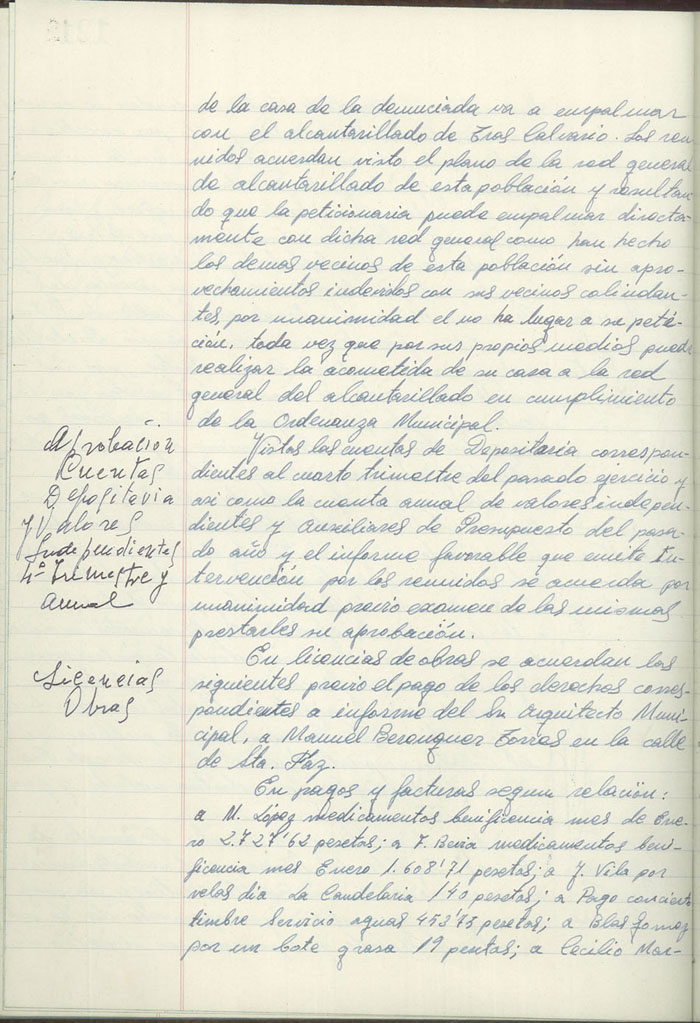 de la casa de la denunciada va a empalmar
con el alcantarillado de Tras Calvario. Los reu-
nidos acuerdan visto el plano de la red general
de alcantarillado de esta población y resultan-
do que la peticionaria puede empalmar directa-
mente con dicha red general como han hecho
los demas vecinos de esta población sin apro-
vechamientos indevidos con sus vecinos colindan-
tes, por unanimidad el no ha lugar a su peti-
ción, toda vez que por sus propios medios puede
realizar la acometida de su casa a la red
general del alcantarillado en cumplimiento
de la Ordenanza Municipal.
Aprobación
Cuentas
Depositaria
y Valores
Independientes
4º Trimestre y
anual
Vistas las cuentas de Depositaria correspon-
dientes al cuarto trimestre del pasado ejercicio y
asi como la cuenta anual de valores indepen-
dientes y Auxiliares de Presupuesto del pasa-
do año y el informe favorable que emite In-
tervención por los reunidos se acuerda por
unanimidad previo examen de las mismas
prestarles su aprobación.
Licencias
Obras
En licencias de obras se acuerdan las
siguientes previo el pago de los derechos corres-
pondientes a informe del Sr. Arquitecto Muni-
cipal, a Manuel Berenguer Torres en la calle
de Sta. Faz.
En pagos y facturas segun relación:
a M. López medicamentos benificencia mes de Ene-
ro 2.727'62 pesetas; a F. Beira medicamentos beni-
ficencia mes Enero 1.608'71 pesetas; a J. Vila por
velas dia La Candelaria 140 pesetas; a Pago concierto
timbre Servicio aguas 453'75 pesetas; a Blas Gomez
por un bote grasa 19 pesetas; a Cecilio Mar-